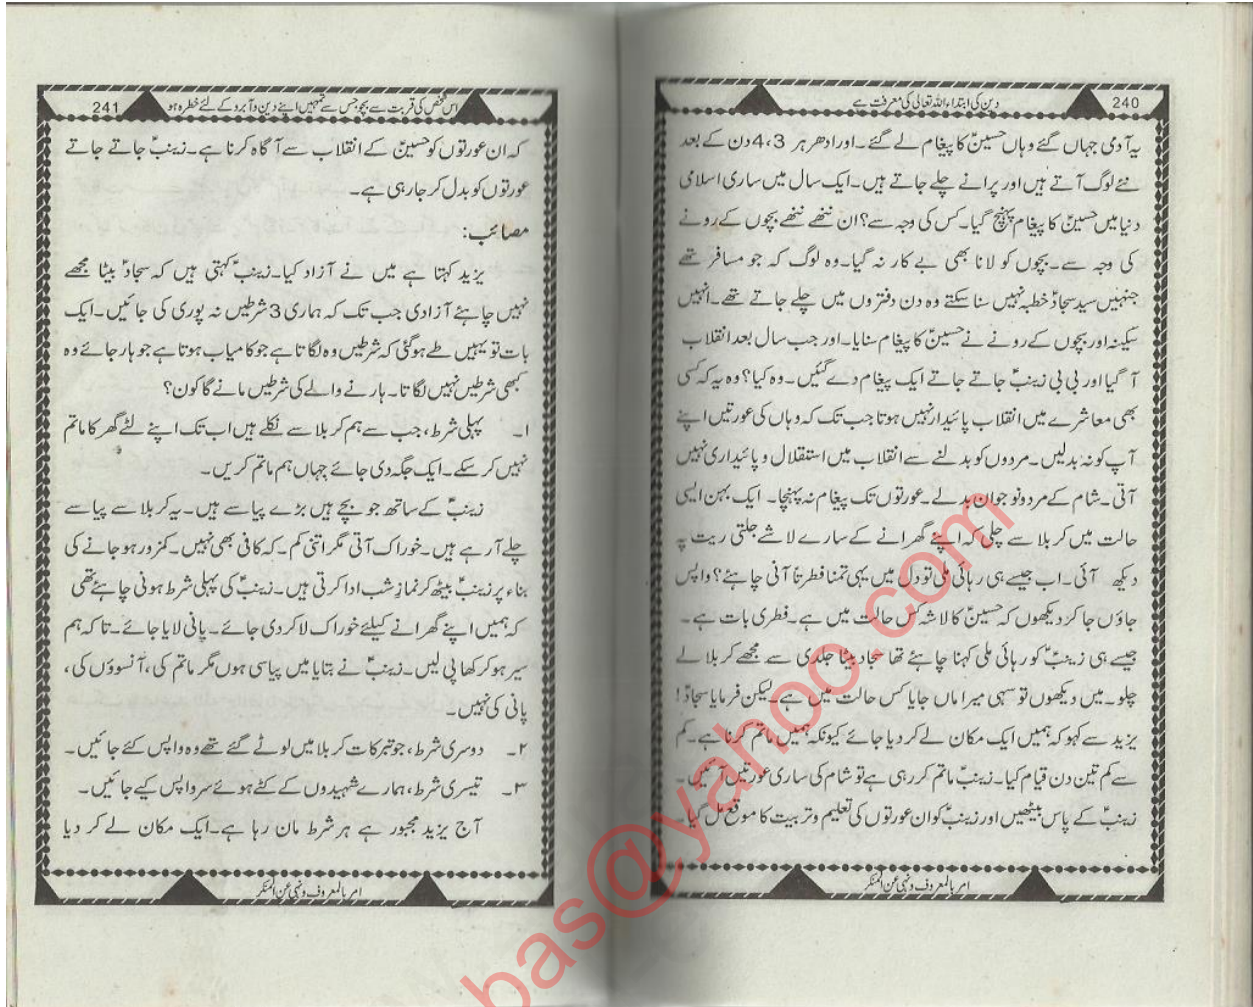 240
دین کی ابتداء اللہ تعالیٰ کی معرفت ہے
یہ آدمی جہاں گئے وہاں حسینؑ کا پیغام لے گئے۔ اور ادھر ہر 3،4 دن کے بعد
نئے لوگ آتے ہیں اور پرانے چلے جاتے ہیں۔ ایک سال میں ساری اسلامی
دنیا میں حسینؑ کا پیغام پہنچ گیا۔ کس کی وجہ سے؟ ان ننھے ننھے بچوں کے رونے
کی وجہ سے۔ بچوں کو لانا بھی بے کار نہ گیا۔ وہ لوگ کہ جو مسافر تھے
جنہیں سید سجادؑ خطبہ نہیں سنا سکتے وہ دن دفتروں میں چلے جاتے تھے۔ انہیں
سکینہ اور بچوں کے رونے نے حسینؑ کا پیغام سنایا۔ اور جب سال بعد انقلاب
آ گیا اور بی بی زینبؑ جاتے جاتے ایک پیغام دے گئیں۔ وہ کیا؟ وہ یہ کہ کسی
بھی معاشرے میں انقلاب پائیدار نہیں ہوتا جب تک کہ وہاں کی عورتیں اپنے
آپ کو نہ بدلیں۔ مردوں کو بدلنے سے انقلاب میں استقلال و پائیداری نہیں
آتی۔ شام کے مرد و نوجوان بدلے۔ عورتوں تک پیغام نہ پہنچا۔ ایک بہن ایسی
حالت میں کربلا سے چلی کہ اپنے گھرانے کے سارے لاشے جلتی ریت پہ
دیکھ آئی۔ اب جیسے ہی رہائی ملی تو دل میں یہی تمنا فطرتاً آنی چاہئے؟ واپس
جاؤں جا کر دیکھوں کہ حسینؑ کا لاشہ کس حالت میں ہے۔ فطری بات ہے۔
جیسے ہی زینبؑ کو رہائی ملی کہنا چاہئے تھا سجاد بیٹا جلدی سے مجھے کربلا لے
چلو۔ میں دیکھوں تو سہی میرا ماں جایا کس حالت میں ہے۔ لیکن فرمایا سجادؑ!
یزید سے کہو کہ ہمیں ایک مکان لے کر دیا جائے کیونکہ ہمیں ماتم کرنا ہے۔ کم
سے کم تین دن قیام کیا۔ زینبؑ ماتم کر رہی ہے تو شام کی ساری عورتیں آئیں۔
زینبؑ کے پاس بیٹھیں اور زینبؑ کو ان عورتوں کی تعلیم و تربیت کا موقع مل گیا۔
امر بالمعروف و نہی عن المنکر
اس شخص کی قربت سے بچو جس سے تمہیں اپنے دین و آبرو کے لئے خطرہ ہو
241
کہ ان عورتوں کو حسینؑ کے انقلاب سے آگاہ کرنا ہے۔ زینبؑ جاتے جاتے
عورتوں کو بدل کر جا رہی ہے۔
مصائب:
یزید کہتا ہے میں نے آزاد کیا۔ زینبؑ کہتی ہیں کہ سجادؑ بیٹا مجھے
نہیں چاہئے آزادی جب تک کہ ہماری 3 شرطیں نہ پوری کی جائیں۔ ایک
بات تو یہیں طے ہو گئی کہ شرطیں وہ لگاتا ہے جو کامیاب ہوتا ہے جو ہار جائے وہ
کبھی شرطیں نہیں لگاتا۔ ہارنے والے کی شرطیں مانے گا کون؟
۱۔ پہلی شرط، جب سے ہم کربلا سے نکلے ہیں اب تک اپنے لٹے گھر کا ماتم
نہیں کر سکے۔ ایک جگہ دی جائے جہاں ہم ماتم کریں۔
زینبؑ کے ساتھ جو بچے ہیں بڑے پیاسے ہیں۔ یہ کربلا سے پیاسے
چلے آ رہے ہیں۔ خوراک آتی مگر اتنی کم۔ کہ کافی بھی نہیں۔ کمزور ہو جانے کی
بناء پر زینبؑ بیٹھ کر نمازِ شب ادا کرتی ہیں۔ زینبؑ کی پہلی شرط ہونی چاہئے تھی
کہ ہمیں اپنے گھرانے کیلئے خوراک لا کر دی جائے۔ پانی لایا جائے۔ تاکہ ہم
سیر ہو کر کھا پی لیں۔ زینبؑ نے بتایا میں پیاسی ہوں مگر ماتم کی، آنسوؤں کی،
پانی کی نہیں۔
۲۔ دوسری شرط، جو تبرکات کربلا میں لوٹے گئے تھے وہ واپس کئے جائیں۔
۳۔ تیسری شرط، ہمارے شہیدوں کے کٹے ہوئے سر واپس کیے جائیں۔
آج یزید مجبور ہے ہر شرط مان رہا ہے۔ ایک مکان لے کر دیا
امر بالمعروف و نہی عن المنکر
bas@yahoo.com